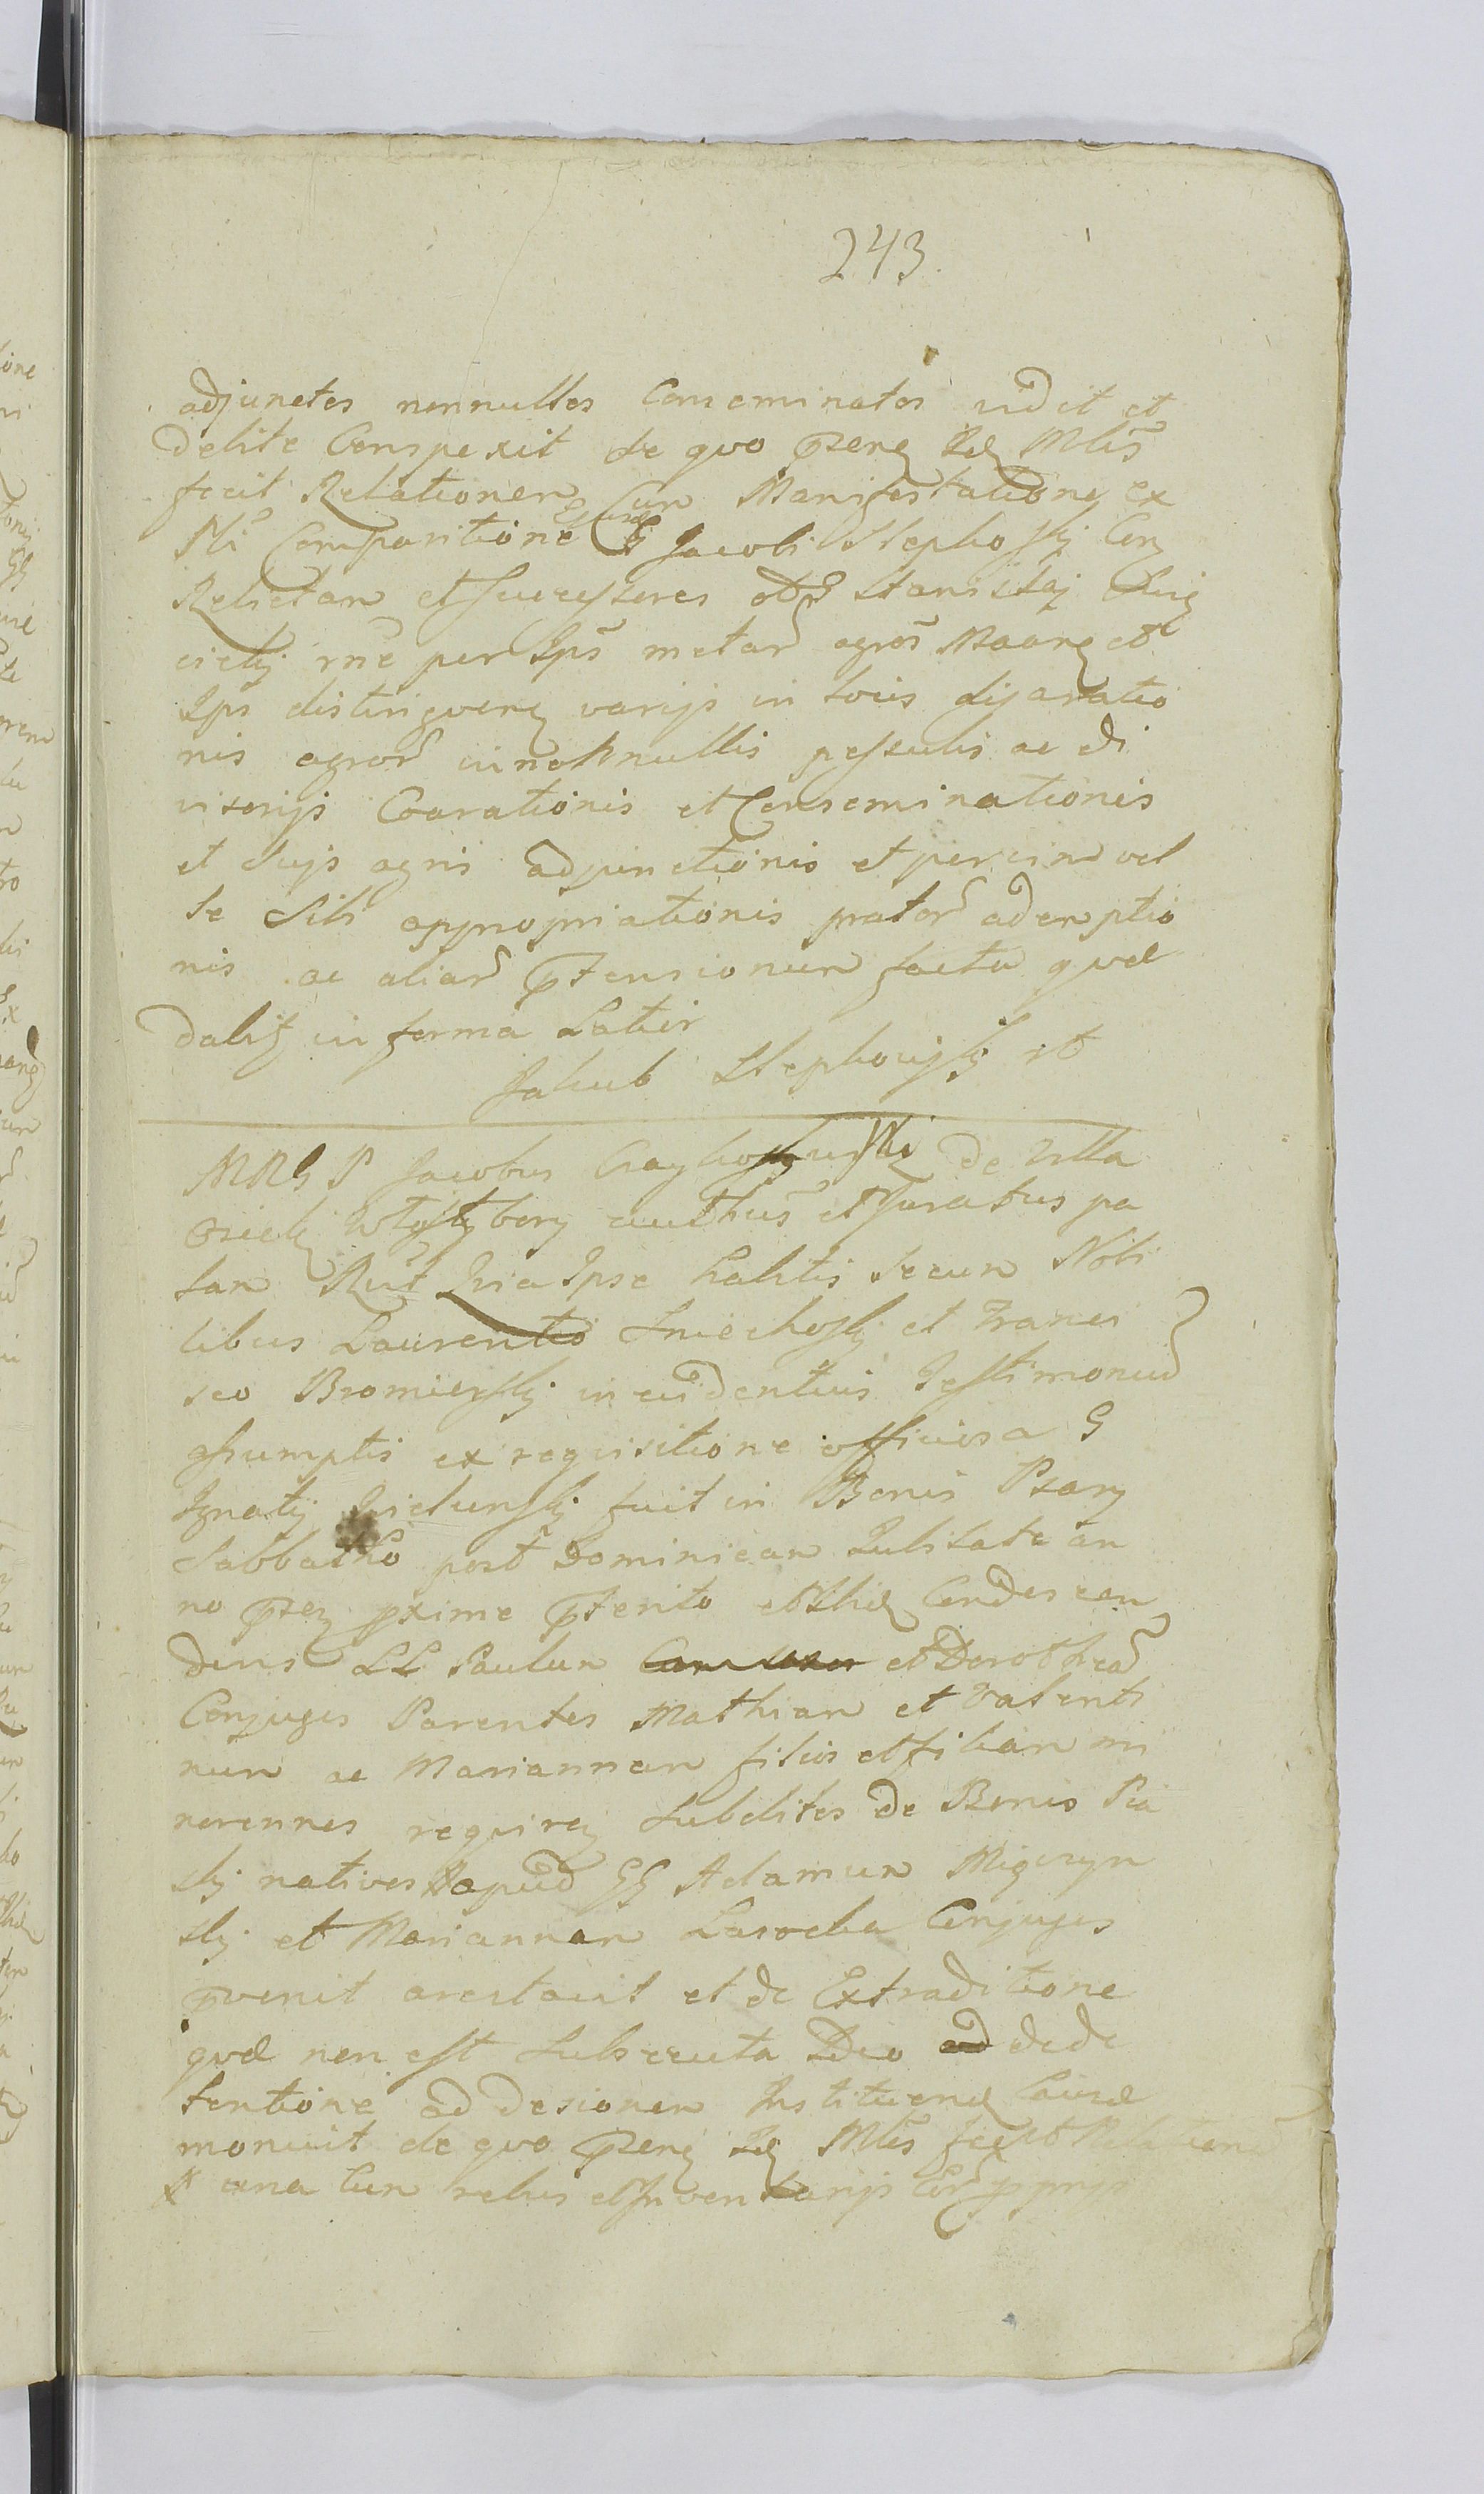 243.
adjunctos nonnullos Conseminatos vidit et
debite Conspexit de quo przns Idem Mlis
fecit Relationem Cum Manifestatione ex
Nli Comparitione G Jacobi Slepkoskj Con
Relictam et Successores olim Stanislaj
vickj rne per Ips metar agros et
Ips distingvere varijs in locis disaratio
nis agror in nonnullis pessulis ac di
visorijs Coarationis et Conseminationis
et Sujs agris adjunctionis et perinde vel
se Sibi appropriationis prator ademptio
nis ac aliar prtensionum facta quae
dabit in forma Latior
Jakub Slepkowskj
MRG P Jacobus de Villa
authus et Juratus pa
lam Quia Ipse habitis secum Nobi
libus Laurentio Smiechoskj et Franci
sco Bromierskj in evidentius Testimoniud
assumptis ex requisitione officiosa G
Ignatij fuit in Bonis Psary
Sabbatho post Dominicam Jubilate an
no przn pxime prterito et Condescen
dens LL Paulum et Dorotheam
Conjuges Parentes Mathiam et Valenti
num ac Mariannam filios et filiam mi
norennes requiren Subditos de Bonis Pia
skj nativos apud GG Adamum
skj et Mariannam Lasocka Conjuges
prvenit arestavit et de Extraditione
quae non est Subsecuta Deo dede
tentione ad decisionem Instituend Causae
monuit de quo przns Idem Mlis fecit Relationem
una Cum rebus et Inventarijs Eor pprijs